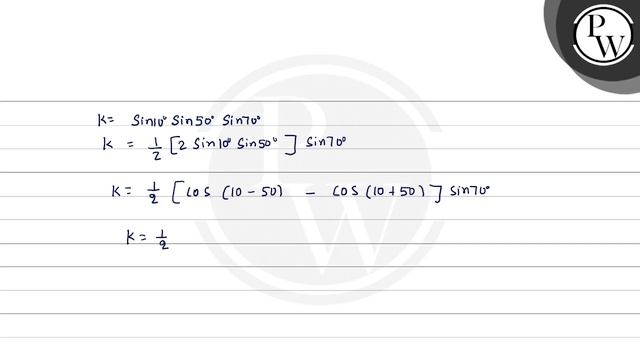 PW
K= Sin10° Sin50° Sin70°
K = 1/2 [2 Sin10° Sin50°] Sin70°
K= 1/2 [cos (10-50) - cos (10+50)] Sin70°
K= 1/2